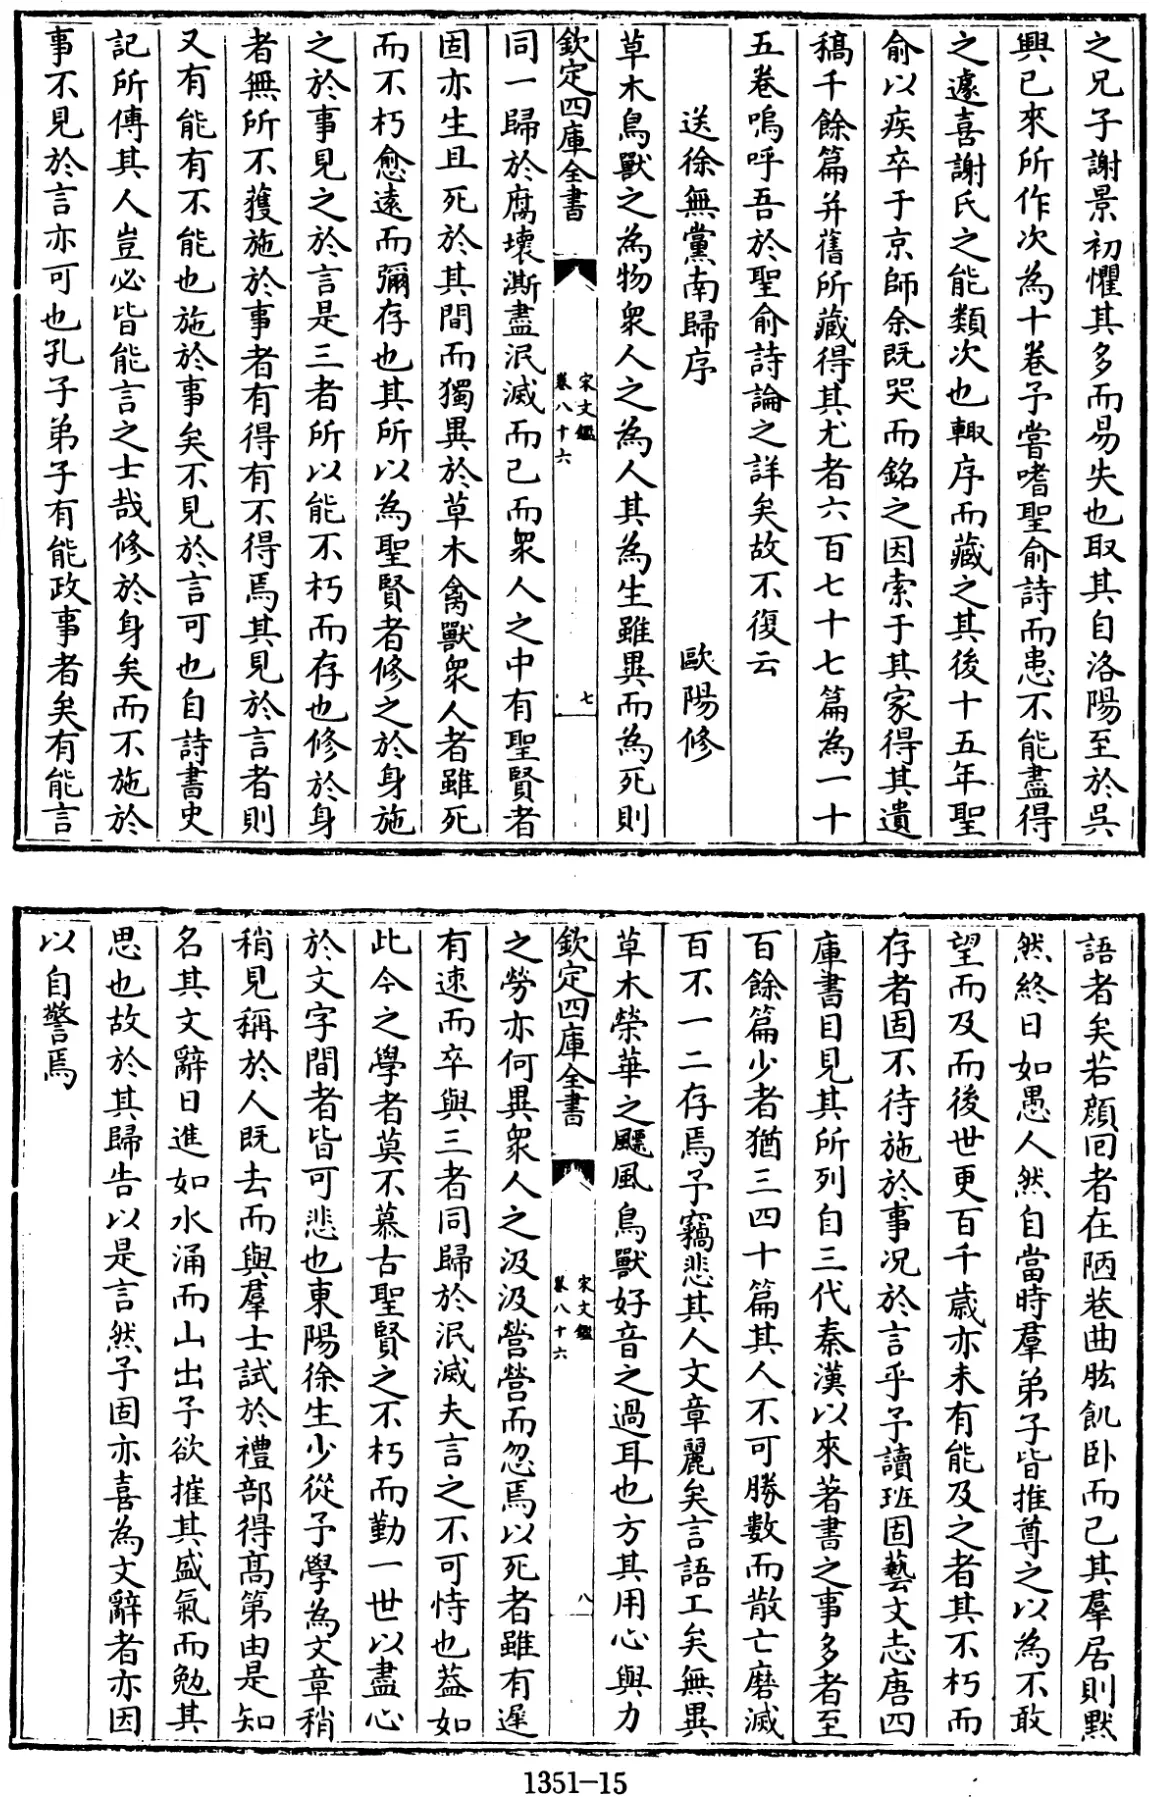 之兄子謝景初懼其多而易失也取其自洛陽至於吳
興已來所作次為十卷予嘗嗜聖俞詩而患不能盡得
之遽喜謝氏之能類次也輙序而藏之其後十五年聖
俞以疾卒于京師余既哭而銘之因索于其家得其遺
稿千餘篇并舊所藏得其尤者六百七十七篇為一十
五卷嗚呼吾於聖俞詩論之詳矣故不復云
送徐無黨南歸序 歐陽修
草木鳥獸之為物衆人之為人其為生雖異而為死則
欽定四庫全書 宋文鑑 卷八十六 七
同一歸於腐壞澌盡泯滅而已而衆人之中有聖賢者
固亦生且死於其間而獨異於草木禽獸衆人者雖死
而不朽愈遠而彌存也其所以為聖賢者修之於身施
之於事見之於言是三者所以能不朽而存也修於身
者無所不獲施於事者有得有不得焉其見於言者則
又有能有不能也施於事矣不見於言可也自詩書史
記所傳其人豈必皆能言之士哉修於身矣而不施於
事不見於言亦可也孔子弟子有能政事者矣有能言
語者矣若顔回者在陋巷曲肱飢卧而已其羣居則黙
然終日如愚人然自當時羣弟子皆推尊之以為不敢
望而及而後世更百千歲亦未有能及之者其不朽而
存者固不待施於事况於言乎予讀班固藝文志唐四
庫書目見其所列自三代秦漢以來著書之事多者至
百餘篇少者猶三四十篇其人不可勝數而散亡磨滅
百不一二存焉予竊悲其人文章麗矣言語工矣無異
草木榮華之飄風鳥獸好音之過耳也方其用心與力
欽定四庫全書 宋文鑑 卷八十六 八
之勞亦何異衆人之汲汲營營而忽焉以死者雖有遲
有速而卒與三者同歸於泯滅夫言之不可恃也葢如
此今之學者莫不慕古聖賢之不朽而勤一世以盡心
於文字間者皆可悲也東陽徐生少從予學為文章稍
稍見稱於人既去而與羣士試於禮部得髙第由是知
名其文辭日進如水涌而山出予欲摧其盛氣而勉其
思也故於其歸告以是言然予固亦喜為文辭者亦因
以自警焉
1351-15